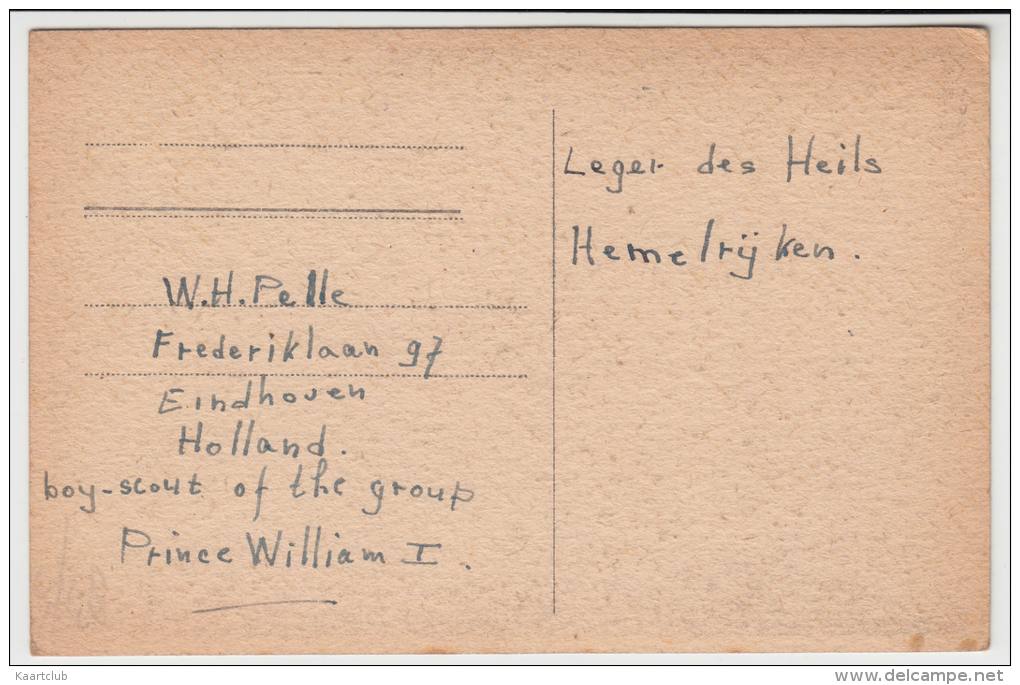 W.H.Pelle
Frederiklaan 97
Eindhoven
Holland.
boy-scout of the group
Prince William I.
Leger des Heils
Hemelrijken.
Kaartclub
delcampe.net